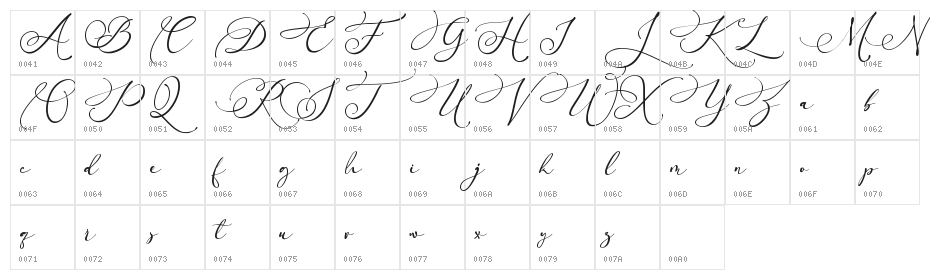 A B C D E F G H I J K L M N
0041 0042 0043 0044 0045 0046 0047 0048 0049 004A 004B 004C 004D 004E
O P Q R S T U V W X Y Z a b
004F 0050 0051 0052 0053 0054 0055 0056 0057 0058 0059 005A 0061 0062
c d e f g h i j k l m n o p
0063 0064 0065 0066 0067 0068 0069 006A 006B 006C 006D 006E 006F 0070
q r s t u v w x y z
0071 0072 0073 0074 0075 0076 0077 0078 0079 007A 00A0